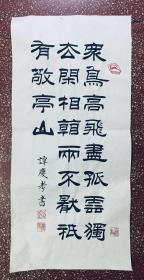 衆鳥高飛盡孤雲獨
去閑相看兩不厭祇
有敬亭山
譚慶孝書